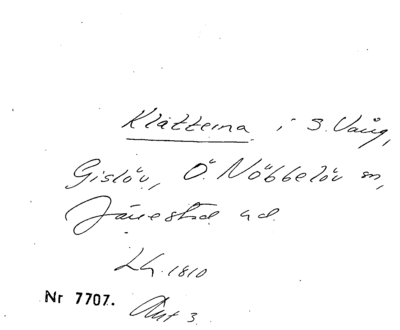 Klätterna i S. Vång,
Gislöv, Ö. Nöbbelöv sn,
Järrestad hd.
Lh. 1810
Nr 7707. Akt 3